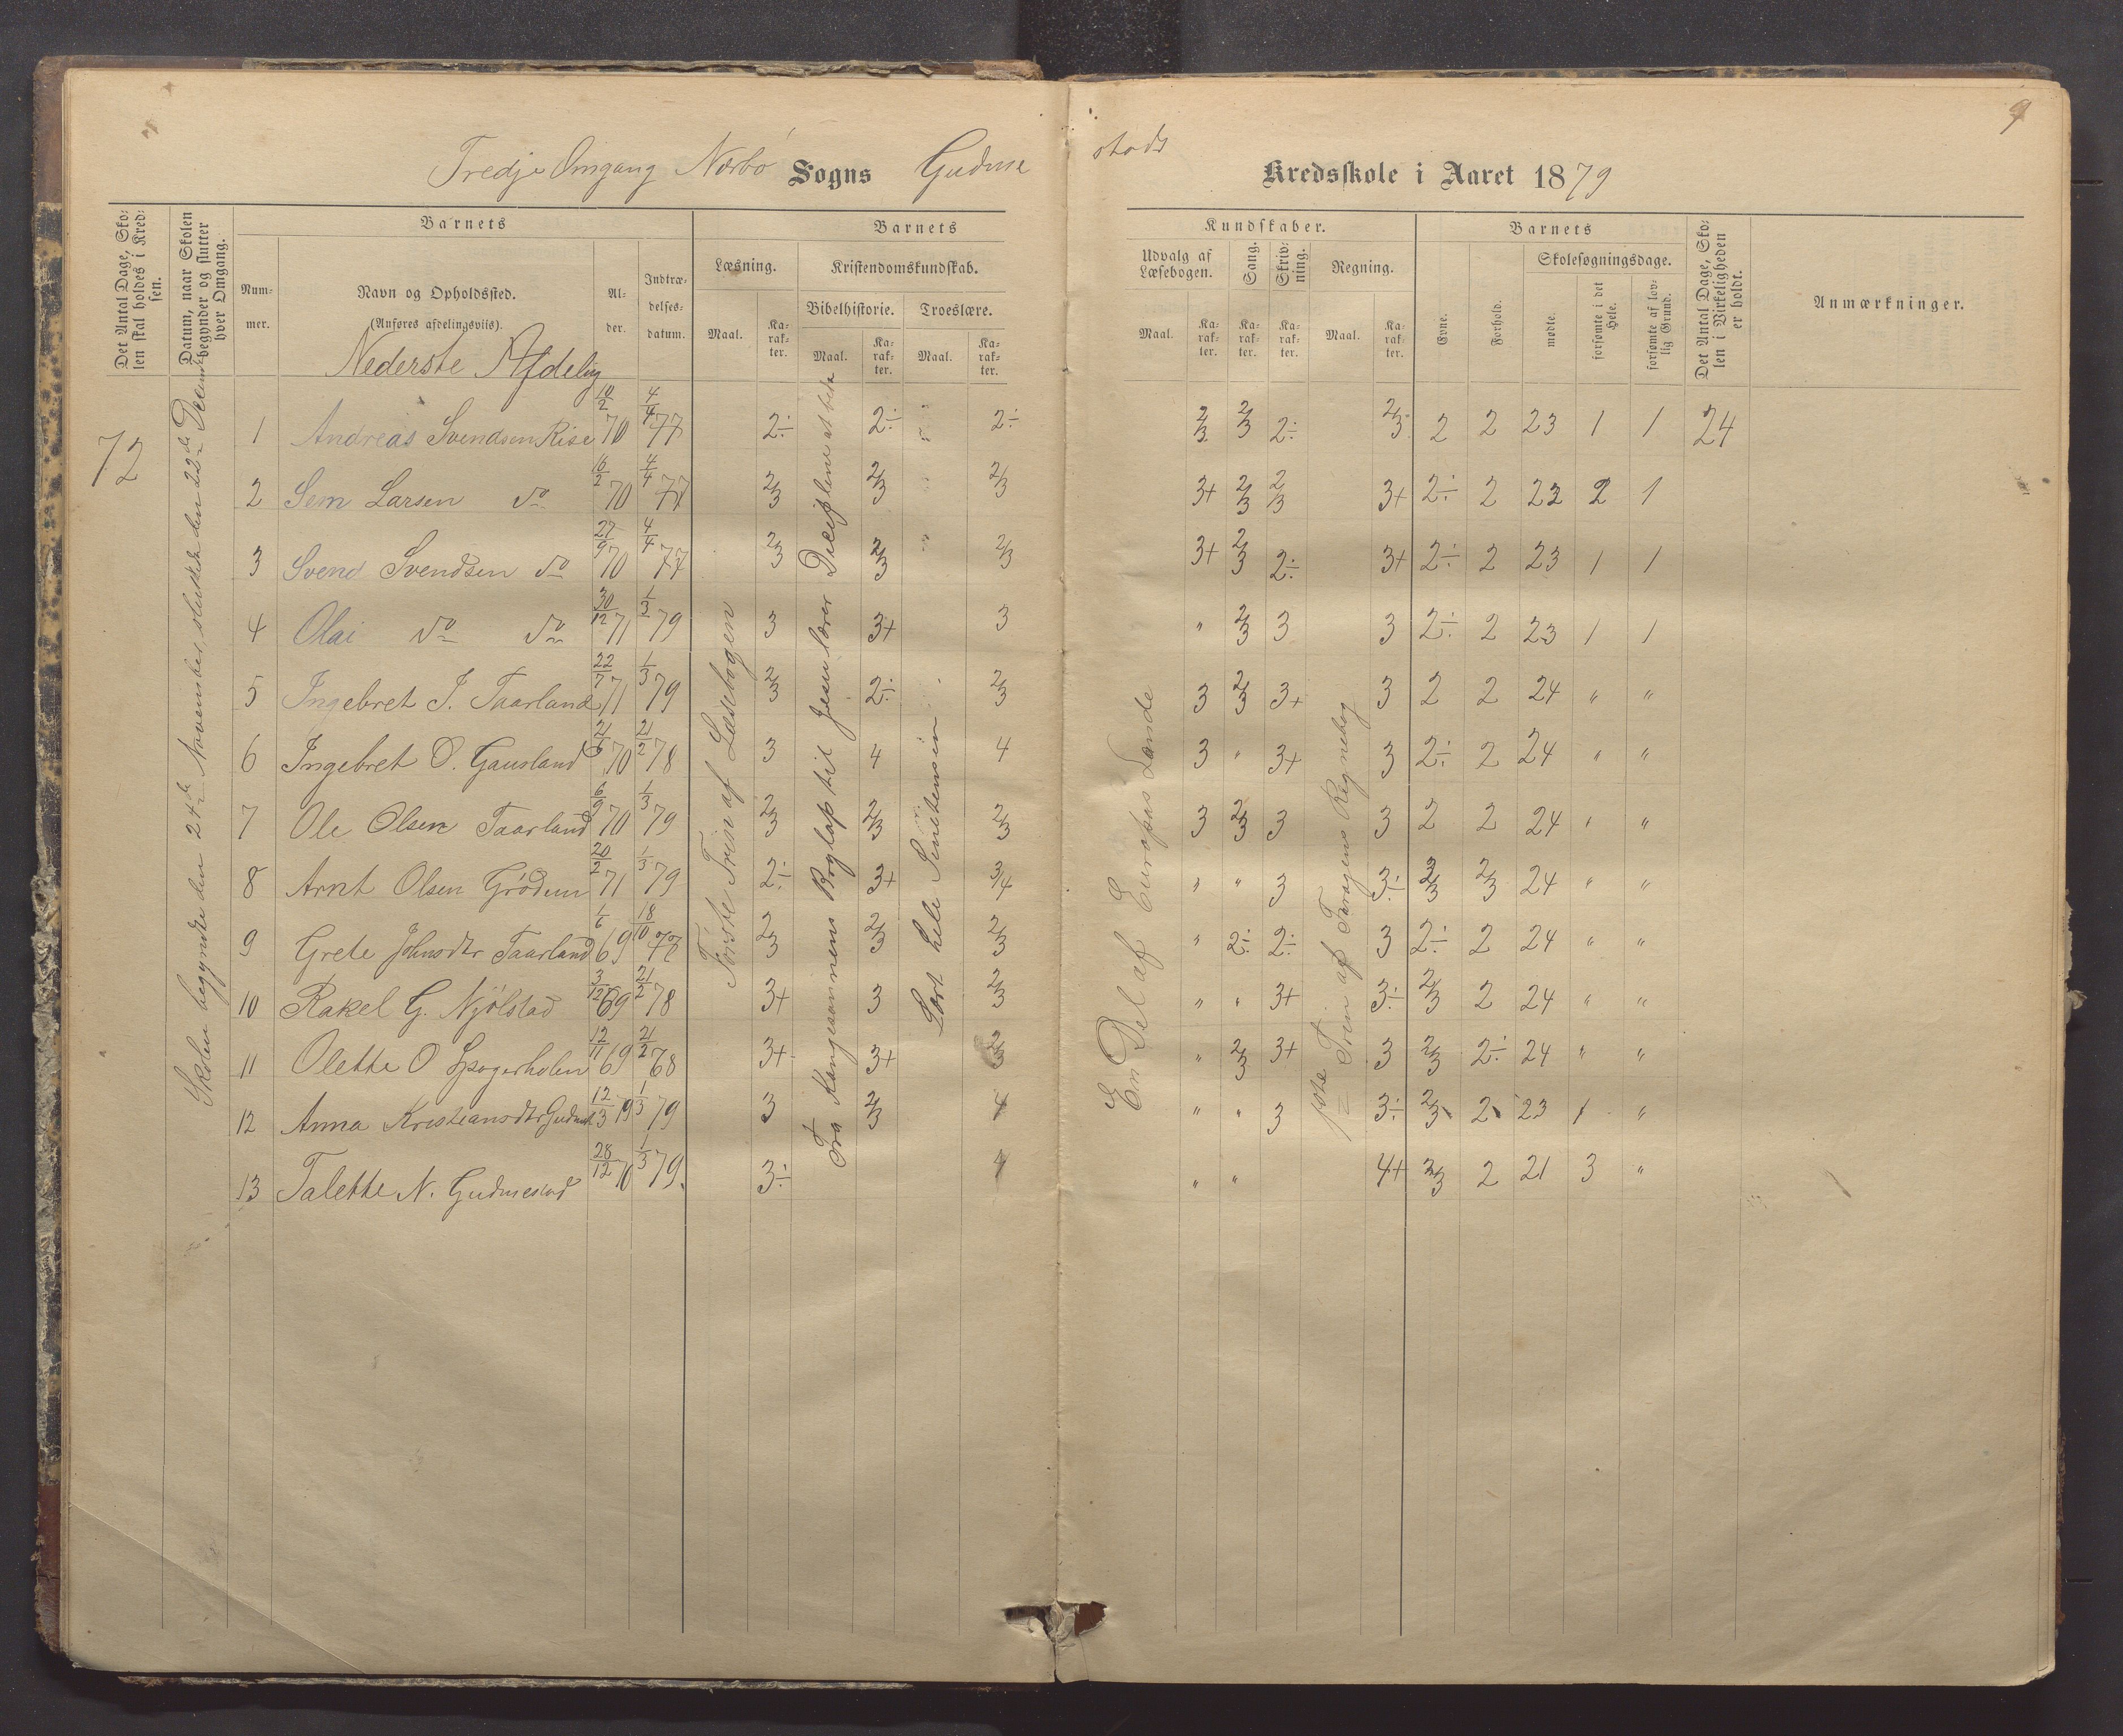 9
Tredje Omgang Nærbø Sogns Gudme
stads Kredsskole i Aaret 1879
Det Antal Dage, Sko-
len skal holdes i Kred-
sen.
Datum, naar Skolen
begynder og slutter
hver Omgang.
Barnets
Num-
mer.
Navn og Opholdssted.
(Anføres afdelingsviis).
Al-
der.
Indtræ-
delses-
datum.
Barnets
Læsning.
Maal.
Ka-
rak-
ter.
Kristendomskundskab.
Bibelhistorie.
Maal.
Ka-
rak-
ter.
Troeslære.
Maal.
Ka-
rak-
ter.
Kundskaber.
Udvalg af
Læsebogen.
Maal.
Ka-
rak-
ter.
Sang.
Ka-
rak-
ter.
Skriv-
ning.
Ka-
rak-
ter.
Regning.
Maal.
Ka-
rak-
ter.
Barnets
Evne.
Forhold.
Skolesøgningsdage.
mødte.
forsømte i det
Hele.
forsømte af lov-
lig Grund.
Det Antal Dage, Sko-
len i Virkeligheden
er holdt.
Anmærkninger.
Nederste Afdeling
72
Skolen begyndte den 24de November, sluttede den 22de Decemb
Første Trin af Læsebogen
Fra Kongesønnens Bryllup til Jesus lærer Disciplene at bede
Lært hele
En Del af Europas Lande
første Trin af Regnebog
1 Andreas Svendsen Rise 14/2 70 4/4 77 2÷ 2÷ 2÷ 2/3 2/3 2÷ 2/3 2 2 23 1 1 24
2 Sem Larsen do 16/2 70 4/4 77 2/3 2/3 2/3 3+ 2/3 2/3 3+ 2÷ 2 22 2 1
3 Svend Svendsen do 27/9 70 4/4 77 2/3 2/3 2/3 3+ 2/3 2÷ 3+ 2÷ 2 23 1 1
4 Olai do do 30/12 71 1/3 79 3 3+ 3 " 2/3 3 3 2÷ 2 23 1 1
5 Ingebret J. Taarland 22/7 71 1/3 79 2/3 2÷ 2/3 3 2/3 3+ 3 2 2 24 " "
6 Ingebret O. Gausland 21/6 70 21/2 78 3 4 4 3 " 3+ 3 2÷ 2 24 " "
7 Ole Olsen Taarland 6/9 70 1/3 79 2/3 2/3 2/3 3 2/3 3 3 2 2 24 " "
8 Arnt Olsen Grødem 20/2 71 1/3 79 2÷ 3+ 3/4 " " 3 3÷ 2/3 2/3 24 " "
9 Grete Johnsdtr Taarland 1/6 69 18/10 77 2/3 2/3 2/3 " 2÷ 2÷ 3 2÷ 2 24 " "
10 Rakel G. Njølstad 3/12 69 21/2 78 3+ 3 2/3 " " 3+ 3÷ 2/3 2 24 " "
11 Olette O 12/11 69 21/2 68 3+ 3+ 2/3 " 2/3 3+ 3 2/3 2÷ 24 " "
12 Anna Kristiansdtr Gudmest 12/3 79 1/3 79 3 2/3 4 " " 3 3÷ 2/3 2 23 1 "
13 Talette N. Gudmestad 28/12 70 1/3 79. 3÷ 4 " " 4+ 3/3 2 21 3 "